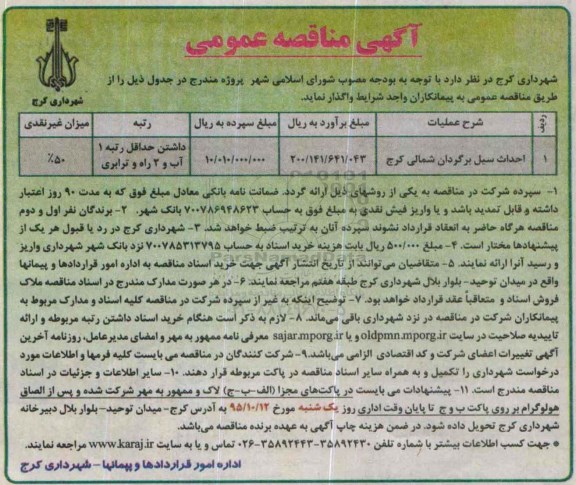 آگهی مناقصه عمومی
شهرداری کرج
شهرداری کرج در نظر دارد با توجه به بودجه مصوب شورای اسلامی شهر پروژه مندرج در جدول ذیل را از
طریق مناقصه عمومی به پیمانکاران واجد شرایط واگذار نماید.
ردیف شرح عملیات مبلغ برآورد به ریال مبلغ سپرده به ریال رتبه میزان غیرنقدی
۱ احداث سیل برگردان شمالی کرج ۲۰۰/۱۴۱/۶۴۱/۰۴۳ ۱۰/۰۱۰/۰۰۰/۰۰۰ داشتن حداقل رتبه ۱ آب و ۲ راه و ترابری ۵۰٪
۱- سپرده شرکت در مناقصه به یکی از روشهای ذیل ارائه گردد. ضمانت نامه بانکی معادل مبلغ فوق که به مدت ۹۰ روز اعتبار
داشته و قابل تمدید باشد و یا واریز فیش نقدی به مبلغ فوق به حساب ۷۰۰۷۸۶۹۴۸۶۲۳ بانک شهر. ۲- برندگان نفر اول و دوم
مناقصه هرگاه حاضر به انعقاد قرارداد نشوند سپرده آنان به ترتیب ضبط خواهد شد. ۳- شهرداری کرج در رد یا قبول هر یک از
پیشنهادها مختار است. ۴- مبلغ ۵۰۰/۰۰۰ ریال بابت هزینه خرید اسناد به حساب ۷۰۰۷۸۵۳۱۳۷۹۵ نزد بانک شهر شهرداری واریز
و رسید آنرا ارائه نمایند. ۵- متقاضیان می‌توانند از تاریخ انتشار آگهی جهت خرید اسناد مناقصه به اداره امور قراردادها و پیمانها
واقع در میدان توحید- بلوار بلال شهرداری کرج طبقه هفتم مراجعه نمایند. ۶- در هر صورت مدارک مندرج در اسناد مناقصه ملاک
فروش اسناد و متعاقباً عقد قرارداد خواهد بود. ۷- توضیح اینکه به غیر از سپرده شرکت در مناقصه کلیه اسناد و مدارک مربوط به
پیمانکاران شرکت در مناقصه در نزد شهرداری باقی می‌ماند. ۸- لازم به ذکر است هنگام خرید اسناد داشتن رتبه مربوطه و ارائه
تاییدیه صلاحیت در سایت oldpmn.mporg.ir و یا sajar.mporg.ir معرفی نامه ممهور به مهر و امضای مدیرعامل، روزنامه آخرین
آگهی تغییرات اعضای شرکت و کد اقتصادی الزامی می‌باشد. ۹- شرکت کنندگان در مناقصه می بایست کلیه فرمها و اطلاعات مورد
درخواست شهرداری را تکمیل و به همراه سایر اسناد مناقصه در پاکت مربوطه قرار دهند. ۱۰- سایر اطلاعات و جزئیات در اسناد
مناقصه مندرج است. ۱۱- پیشنهادات می بایست در پاکت‌های مجزا (الف-ب-ج) لاک و ممهور به مهر شرکت شده و پس از الصاق
هولوگرام بر روی پاکت ب و ج تا پایان وقت اداری روز یک شنبه مورخ ۹۵/۱۰/۱۲ به آدرس کرج- میدان توحید- بلوار بلال دبیرخانه
شهرداری کرج تحویل داده شود. در ضمن هزینه چاپ آگهی به عهده برنده مناقصه می‌باشد.
جهت کسب اطلاعات بیشتر با شماره تلفن ۳۵۸۹۲۴۳۰-۳۵۸۹۲۴۴۳-۰۲۶ تماس و یا به سایت www.karaj.ir مراجعه نمایند.
اداره امور قراردادها و پیمانها - شهرداری کرج